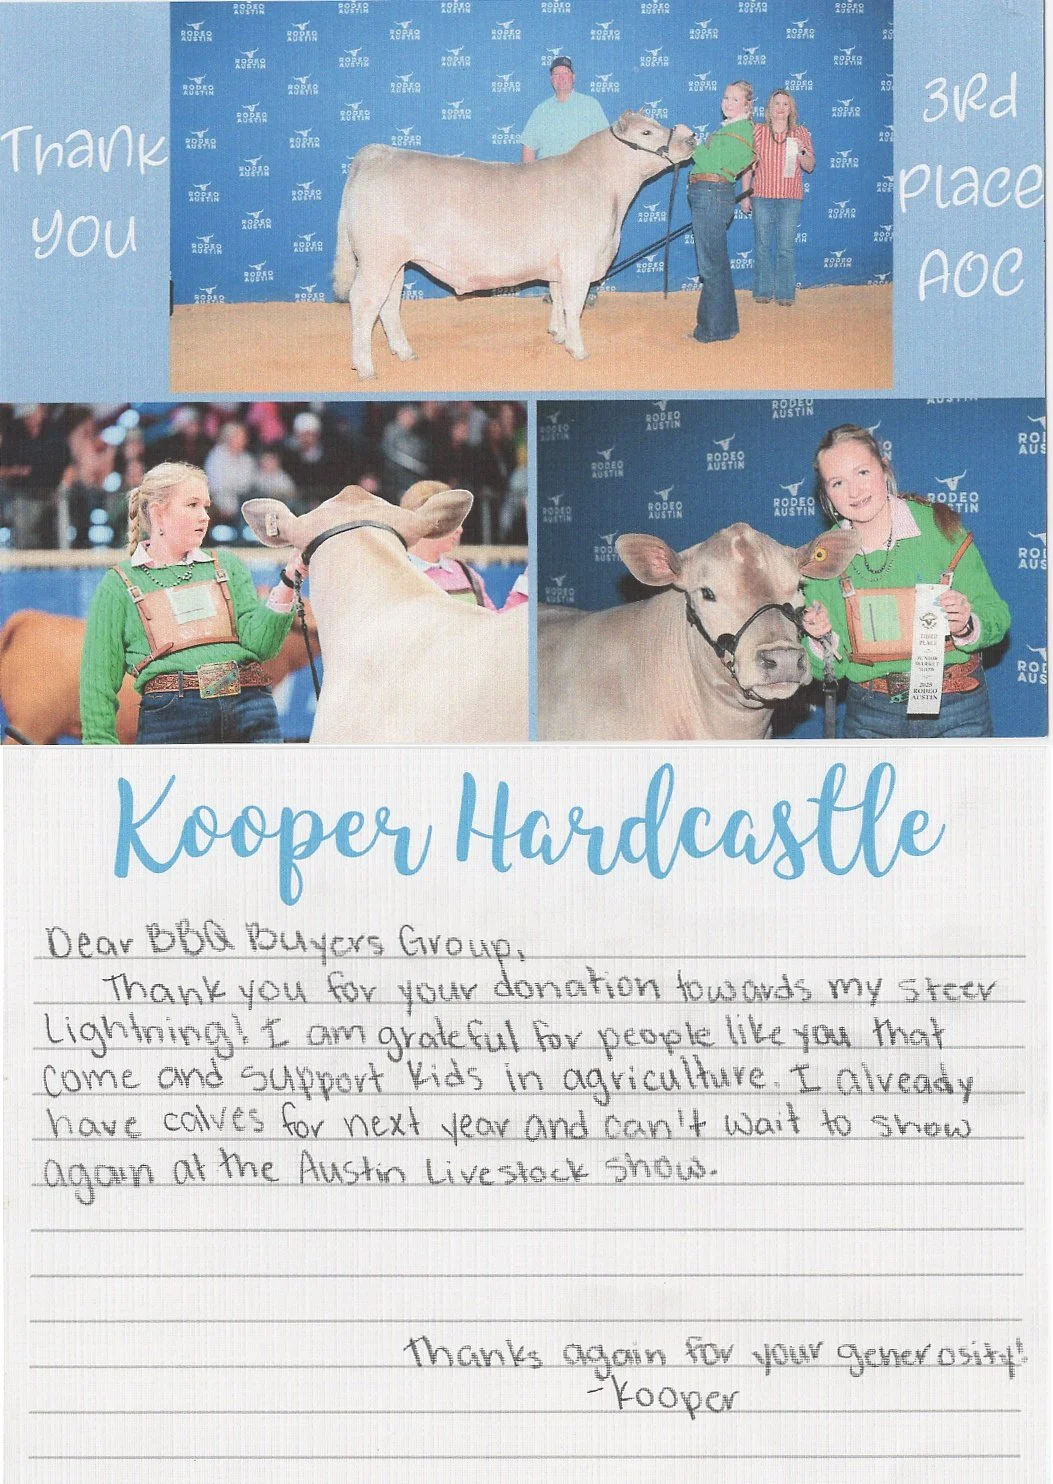 Thank
you
3rd
Place
AOC
RODEO
AUSTIN
THIRD
PLACE
JUNIOR
MARKET
SHOW
2025
RODEO
AUSTIN
Kooper Hardcastle
Dear BBQ Buyers Group,
Thank you for your donation towards my steer
Lightning! I am grateful for people like you that
come and support kids in agriculture. I already
have calves for next year and can't wait to show
again at the Austin Livestock show.
Thanks again for your generosity!
-Kooper